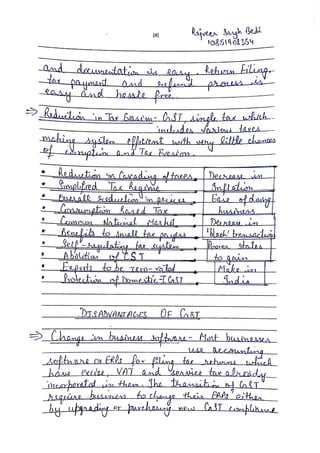 [4]
Rajveer Singh Bedi
10851908354
and documentation is easy. Return Filing,
tax payment and refund process is
easy and hassle free.
⇒ Reduction in Tax Evasion - GST, single tax which
includes various taxes
making system efficient with very little chances
of corruption and Tax Evasion.
• Reduction in Cascading of taxes
• Simplified Tax Regime
• Overall Reduction in prices
• Consumption Based Tax
• Common National Market
• Benefits to small tax payers
• Self-regulating tax system
• Abolition of CST
• Exports to be zero-rated
• Protection of Domestic-IGST
Decrease in
Inflation
Ease of doing
business
Decrease in
'black' transactions
Poorer states
to gain
Make in
India
DISADVANTAGES OF GST
⇒ Change in business software - Most businesses
use accounting
software or ERPs for filing tax returns which
have excise, VAT and service tax already
incorporated in them. The transition of GST
require business to change their ERPs either
by upgrading or purchasing new GST compliance